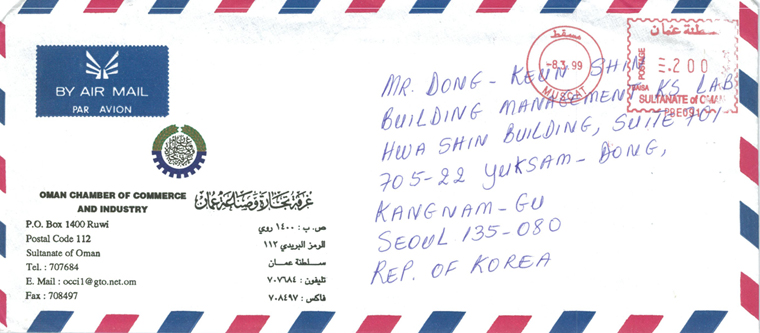 BY AIR MAIL
PAR AVION
OMAN CHAMBER OF COMMERCE
AND INDUSTRY
P.O. Box 1400 Ruwi
Postal Code 112
Sultanate of Oman
Tel. : 707684
E. Mail : occi1@gto.net.om
Fax : 708497
غرفة تجارة وصناعة عمان
ص.ب : ١٤٠٠ روي
الرمز البريدي ١١٢
سلطنة عمان
تليفون : ٧٠٧٦٨٤
فاكس : ٧٠٨٤٩٧
مسقط
-8.3.99
MUSCAT
سلطنة عمان
POSTAGE
200
BAISA
SULTANATE of OMAN
MR. DONG-KEUN SHIN
BUILDING MANAGEMENT KS LAB
HWA SHIN BUILDING, SUITE 701
705-22 YUKSAM-DONG,
KANGNAM-GU
SEOUL 135-080
REP. OF KOREA